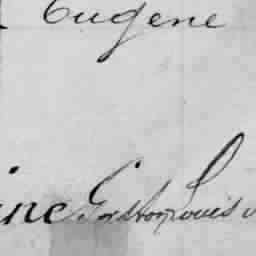 Eugene
ine Gaston Louis